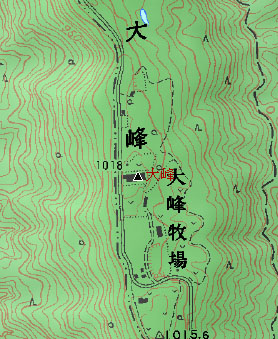 大峰
1018
大峰
大峰牧場
1015.6